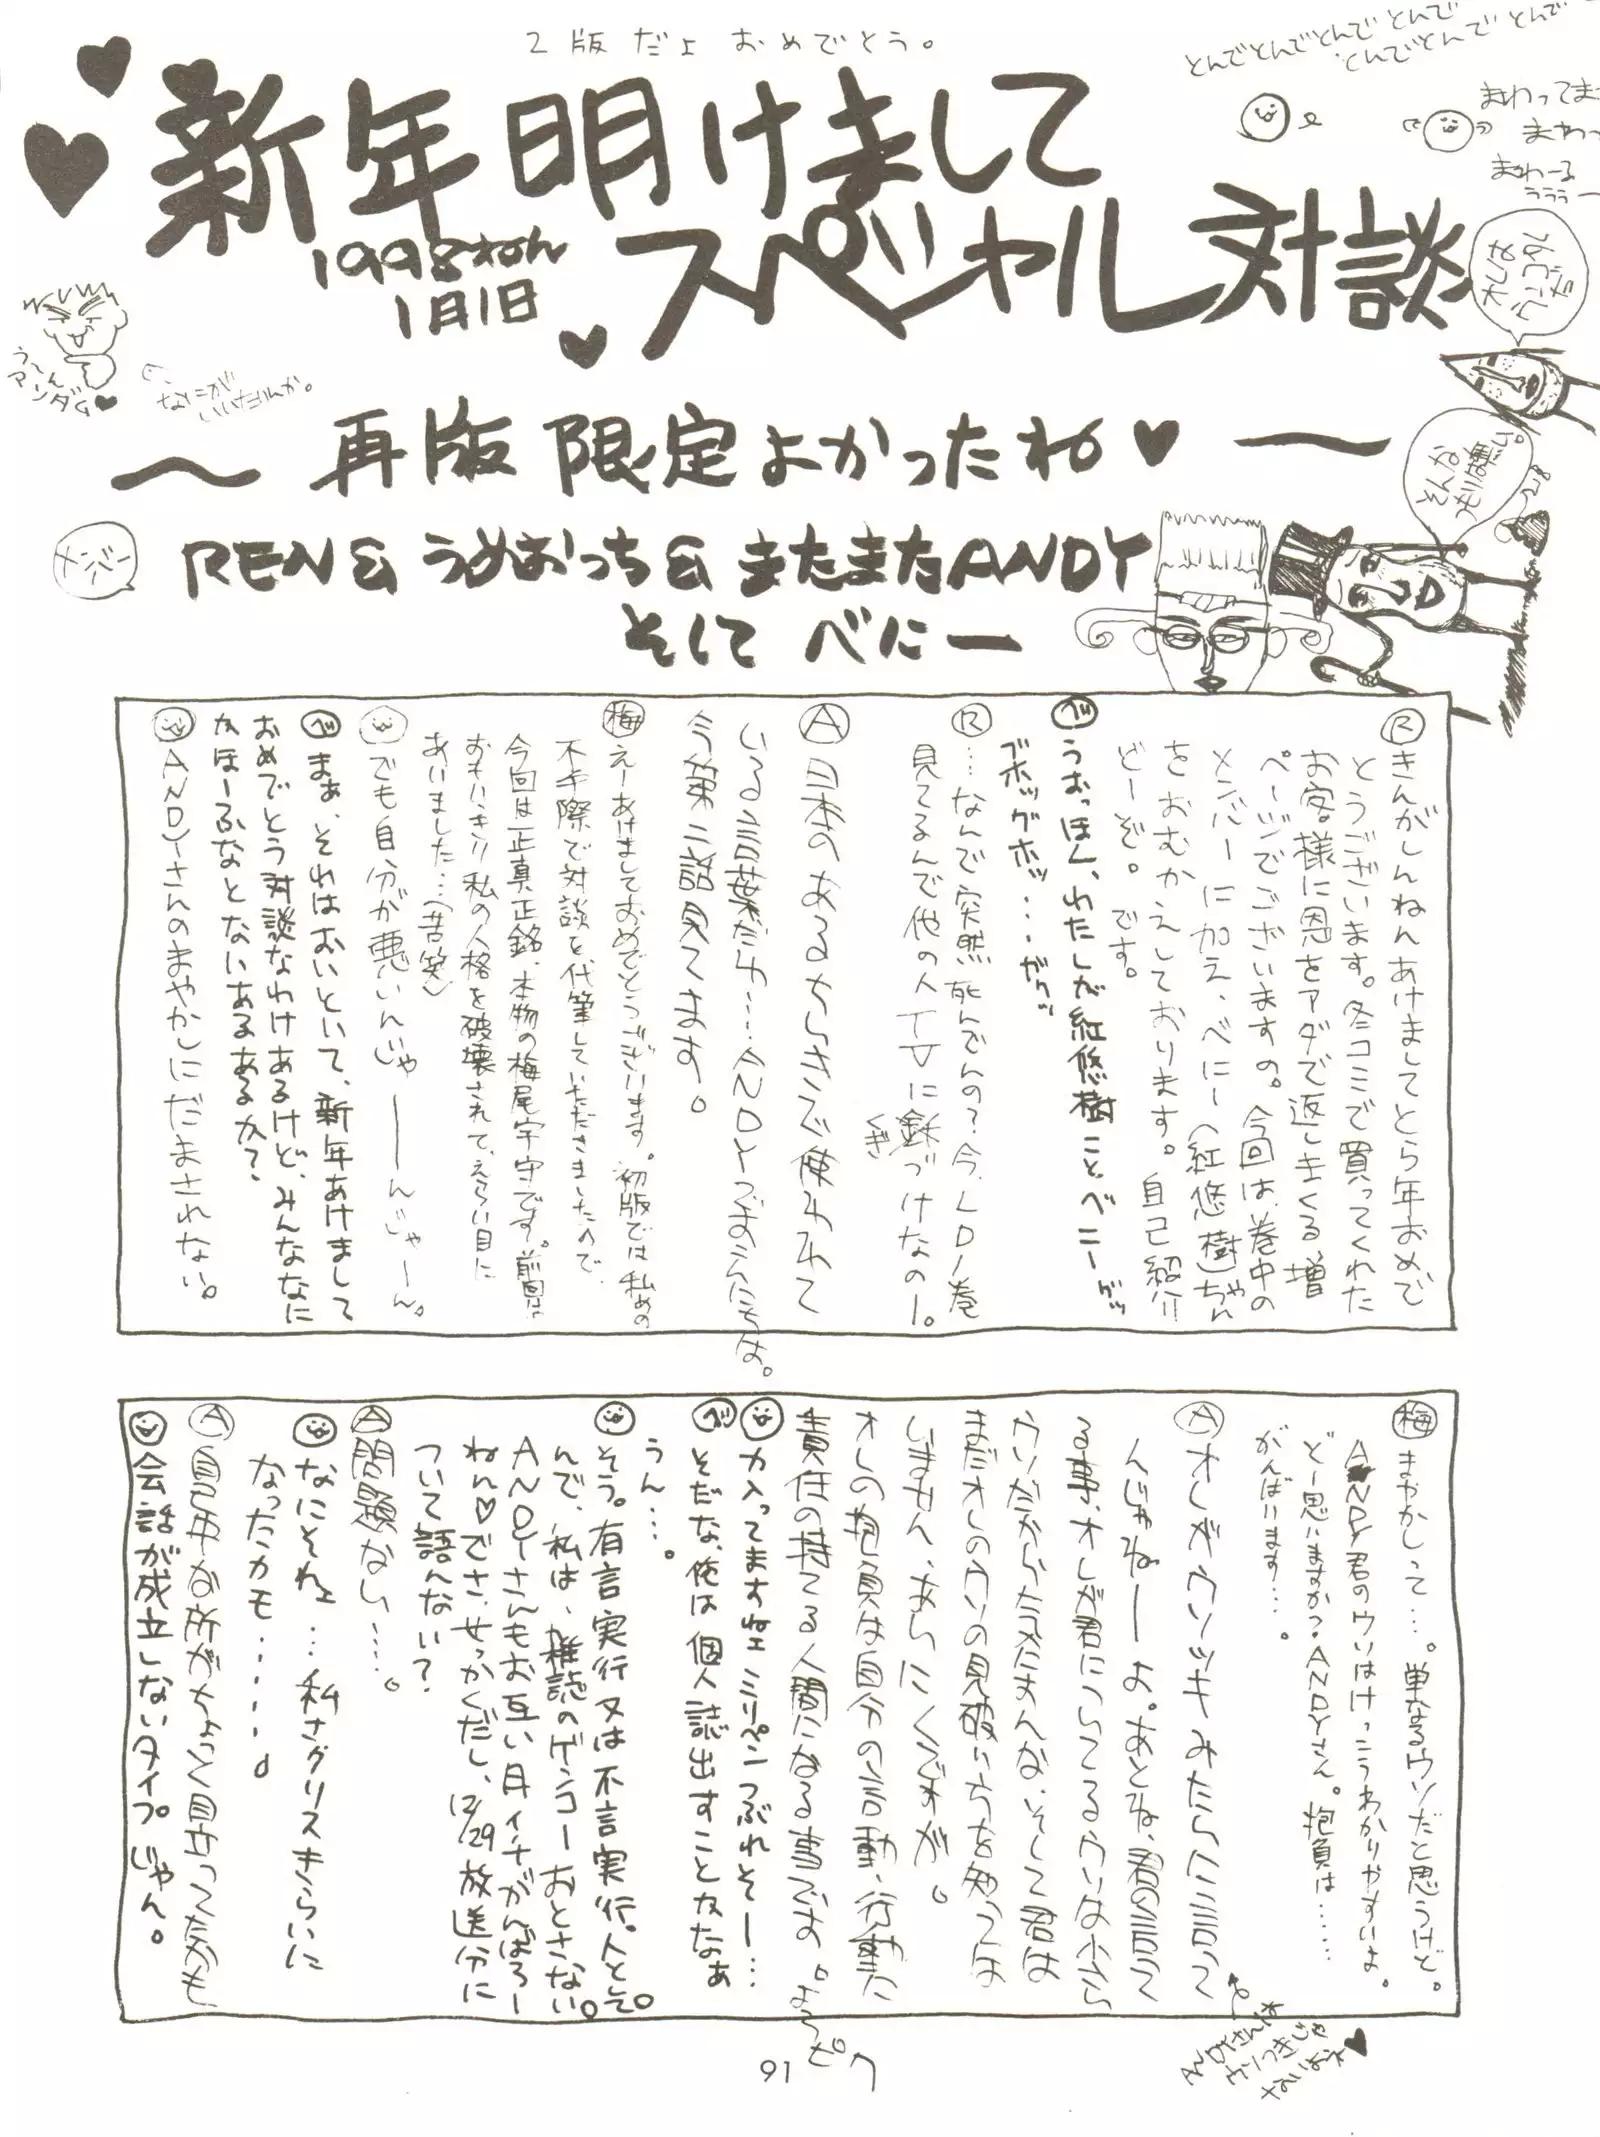 2版だよ おめでとう。
とんでとんでとんでとんで
とんでとんでとんでとんで
まわって
まわーる
うううー
新年明けまして
1998ねん
1月1日
スペシャル対談
う〜ん
アンダム♥
なにが
いいだんか。
〜再版限定よかったね♥〜
メンバー
REN&うめおっち&またまたANDY
そして べにー
Ⓡきんがしんねんあけましてとら年おめで
とうございます。冬コミで買ってくれた
お客様に恩をアダで返しまくる増
ページでございますの。今回は、巻中の
メンバーに加え、べにー(紅悠樹)ちゃん
をおむかえしております。自己紹介
どーぞ。です。
べうおっほん、わたしが紅悠樹ことベニーゲッ
ボホッグホッ…ガクッ
Ⓡ…なんで突然死んでんの?今、LD1巻
見てるんで他の人TVに釘づけなのー。
くぎ
Ⓐ日本のあるちいきで使われて
いる言葉だわ…ANDYでまんにちは。
今第二話見てます。
梅えーあけましておめでとうございます。初版では私めの
不手際で対談を代筆していただきましたので、
今回は正真正銘、本物の梅尾宇宇です。前回は
おもいっきり私の人格を破壊されて、えらい目に
あいました…(苦笑)
でも自分が悪いんじゃーーんじゃーん。
べまぁ、それはおいといて、新年あけまして
おめでとう対談なわけあるけど、みんななに
かほーふなとないあるあるか?
ANDYさんのまやかしにだまされない。
梅まやかしって…。単なるウソだと思うけど。
ANDY君のウソはけっこうわかりやすいよ。
どー思いますか?ANDYさん。抱負は……
がんばります…。
Ⓐオレがウソツキみたいに言って
んじゃねーーよ。あとね、君の言って
る事、オレが君についてるウソは少ら
ウソだからたえにまんな、そして君は
まだオレのウソの見破いちを知っては
いません、あらにくですが。
オレの抱負は自分の言動、行動に
責任の持てる人間になる事です。よろピク
力入ってますねェミリペンつぶれそー…
べそだな、俺は個人誌出すことかなぁ
うん…。
そう。有言実行又は不言実行。人として。
んで、私は、雑誌のゲンコーおとさない。
ANDYさんもお互い月イチがんばろー
ねん♥でさ、せっかくだし、12/29放送分に
ついて語んない?
Ⓐ問題ない…。
なにそれェ…私さグリスきらいに
なったカモ……
Ⓐ自己中な所がちょっと目立ってたかも
会話が成立しないタイプじゃん。
ANDYさんは
ウソつきじゃ
ないよネ♥
91